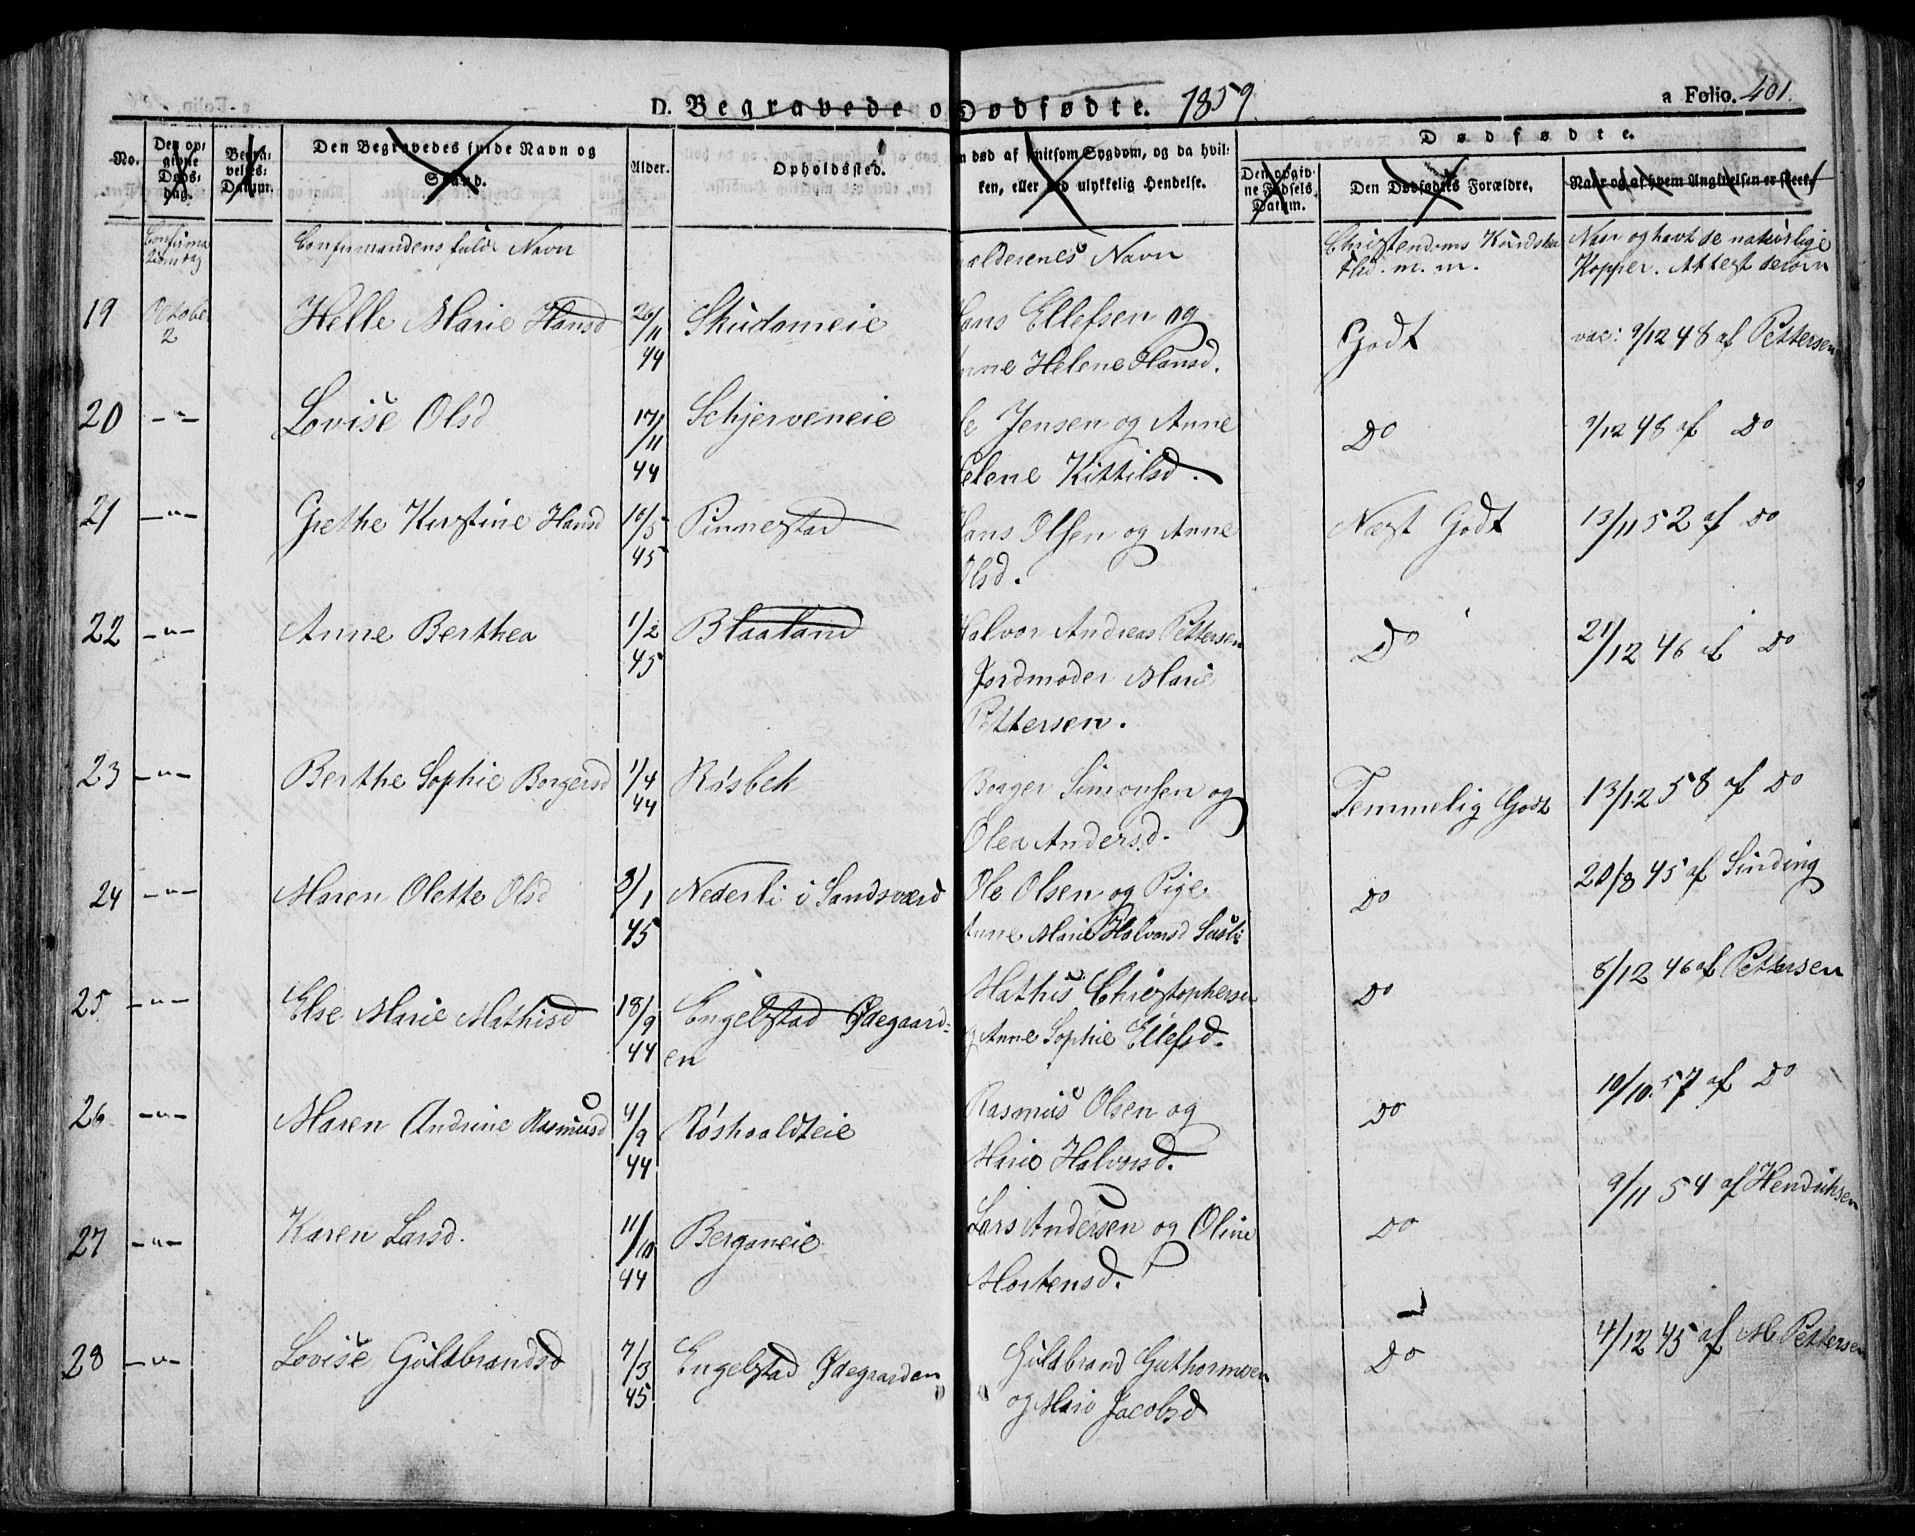 D. Begravede o Dødfødte. 1859. a Folio. 401.
No. Den opgivne Døds-dag. Begravelses-Datum. Den Begravedes fulde Navn og Stand. Alder. Opholdssted. n død af hvilsom Sygdom, og da hvilken, eller ved ulykkelig Hendelse. Dødfødte.
Den opgivne Fødsels Datum. Den Dødfødtes Forældre. Naar og af hvem Angivelsen er skeet.
Confirmations dag Confirmandens fulde Navn ældrenes Navn Christendoms Kundskab Flid. m. m. Naar og havt de naturlige Kopper. Attest derom
19 October 2 Helle Marie Hansd 26/11 44 Skudameie Hans Ellefsen og Godt vac: 9/12 48 af Pettersen
Anne Helene Hansd.
20 -"- Lovise Olsd 17/11 44 Schjerveneie Ole Jensen og Anne Do 9/12 48 af Do
Helene Kittilsd.
21 -"- Grethe Kirstine Hansd 10/5 45 Pinnestad Hans Olsen og Anne Næst Godt 13/11 52 af Do
Olsd.
22 -"- Anne Berthea 1/2 45 Blaaland Halvor Andreas Pettersen Do 21/12 46 af Do
Jordmoder Marie
Pettersen.
23 -"- Berthe Sophie Borgersd 1/4 44 Røsbek Borger Simonsen og Temmelig Godt 13/12 58 af Do
Olea Andersd.
24 -"- Maren Olette Olsd 2/1 45 Nederli i Sandsværd Ole Olsen og Pige Do 20/8 45 af Sinding
Anne Marie Halvorsd
25 -"- Else Marie Mathisd 18/9 44 Engelstad Ødegaard- Mathis Christophersen Do 8/12 46 af Pettersen
en og Anne Sophie Ellefsd.
26 -"- Maren Andrine Rasmusd 4/9 44 Røshaaldteie Rasmus Olsen og Do 10/10 57 af Do
Marie Halvorsd.
27 -"- Karen Larsd. 11/10 44 Berganeie Lars Andersen og Oline Do 9/11 54 af Hendriksen
Mortensd.
28 -"- Lovise Guldbrandsd 7/3 45 Engelstad Ødegaarden Guldbrand Guthormsen Do 4/12 45 af M Pettersen
og Marie Jacobsd